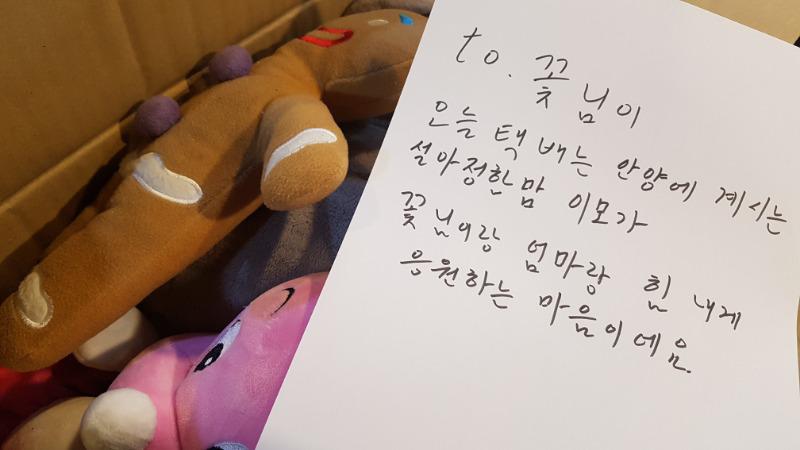 to. 꽃님이
오늘 택배는 안양에 계시는
설아정한맘 이모가
꽃님이랑 엄마랑 힘 내게
응원하는 마음이에요.